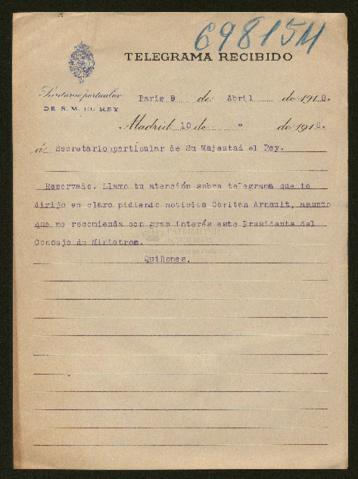 698154
TELEGRAMA RECIBIDO
Secretaría particular
DE S. M. EL REY
Paris 9 de Abril de 1918.
Madrid 10 de " de 1918.
á Secretario particular de Su Majestad el Rey.
Reservado. Llamo tu atención sobre telegrama que te
dirijo en claro pidiendo noticias Capitan Arnoult, asunto
que me recomienda con gran interés este Presidente del
Consejo de Ministros.
Quiñones.